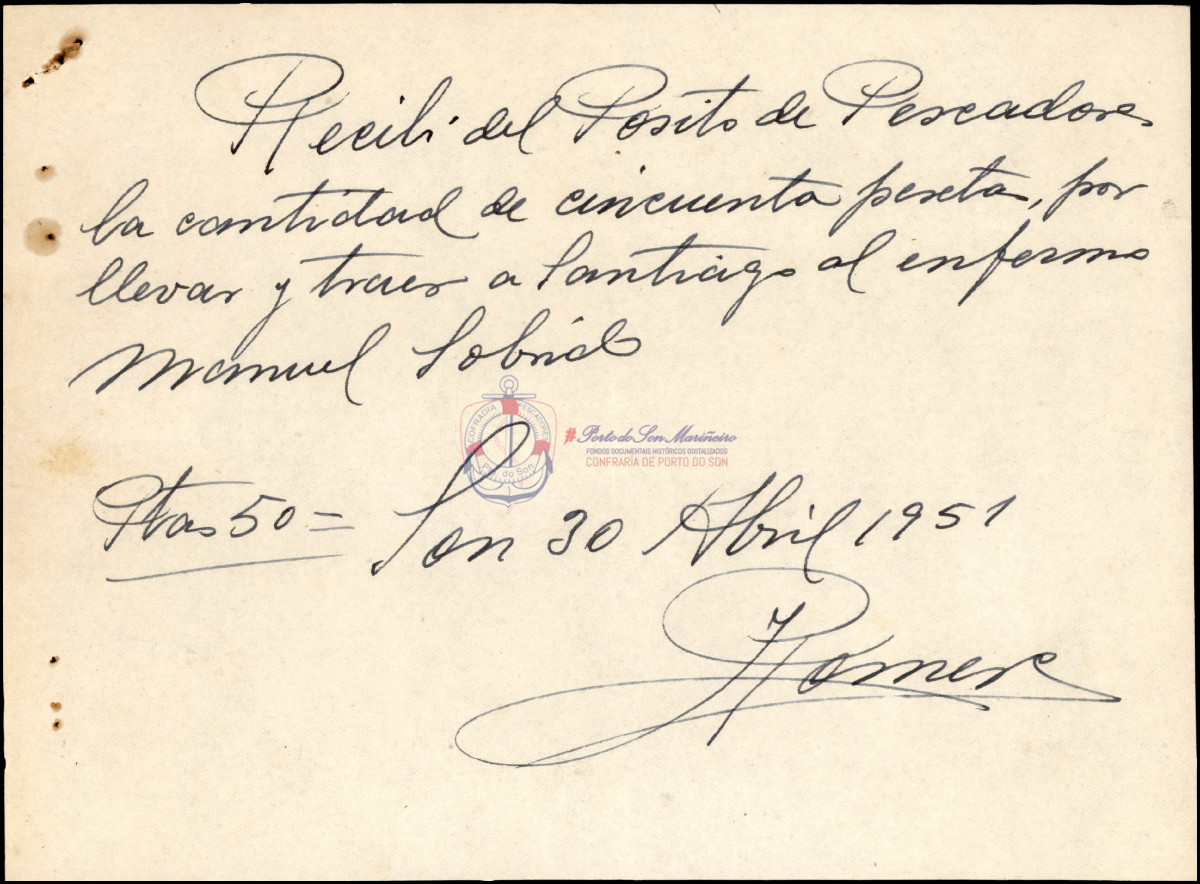 Recibí del Posito de Pescadores
la cantidad de cincuenta pesetas, por
llevar y traer a Santiago al enfermo
Manuel Sobrido
COFRADIA PESCADORES
Pto. do Son
# Porto do Son Mariñeiro
FONDOS DOCUMENTAIS HISTÓRICOS DIXITALIZADOS
CONFRARÍA DE PORTO DO SON
Ptas 50 = Son 30 Abril 1951
Romero